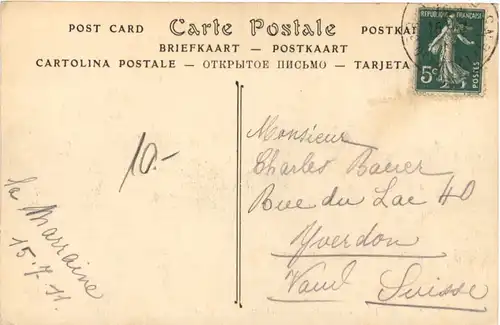 POST CARD Carte Postale POSTKA
BRIEFKAART — POSTKAART
CARTOLINA POSTALE — ОТКРЫТОЕ ПИСЬМО — TARJETA
REPUBLIQUE FRANÇAISE
5c
POSTES
10.-
Monsieur
Charles Baerer
Rue du Lac 40
Yverdon
Vaud Suisse
la Marraine
15.7.11.